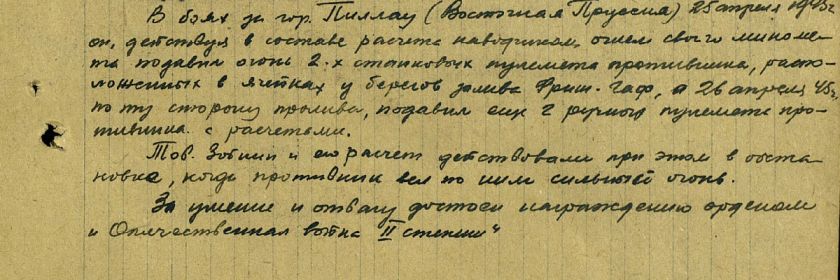 В боях за гор. Пиллау (Восточная Пруссия) 25 апреля 1945г
он, действуя в составе расчета наводчиком, огнем своего миноме-
та подавил огонь 2-х станковых пулемета противника, распо-
ложенных в ячейках у берегов залива Фриш-Гаф, а 26 апреля 45г,
по ту сторону пролива, подавил еще 2 ручных пулемета про-
тивника с расчетами.
Тов. Зобнин и его расчет действовали при этом в обста
новке, когда противник вел по ним сильный огонь.
За умение и отвагу достоен награждению орденом
"Отечественная война II степени"